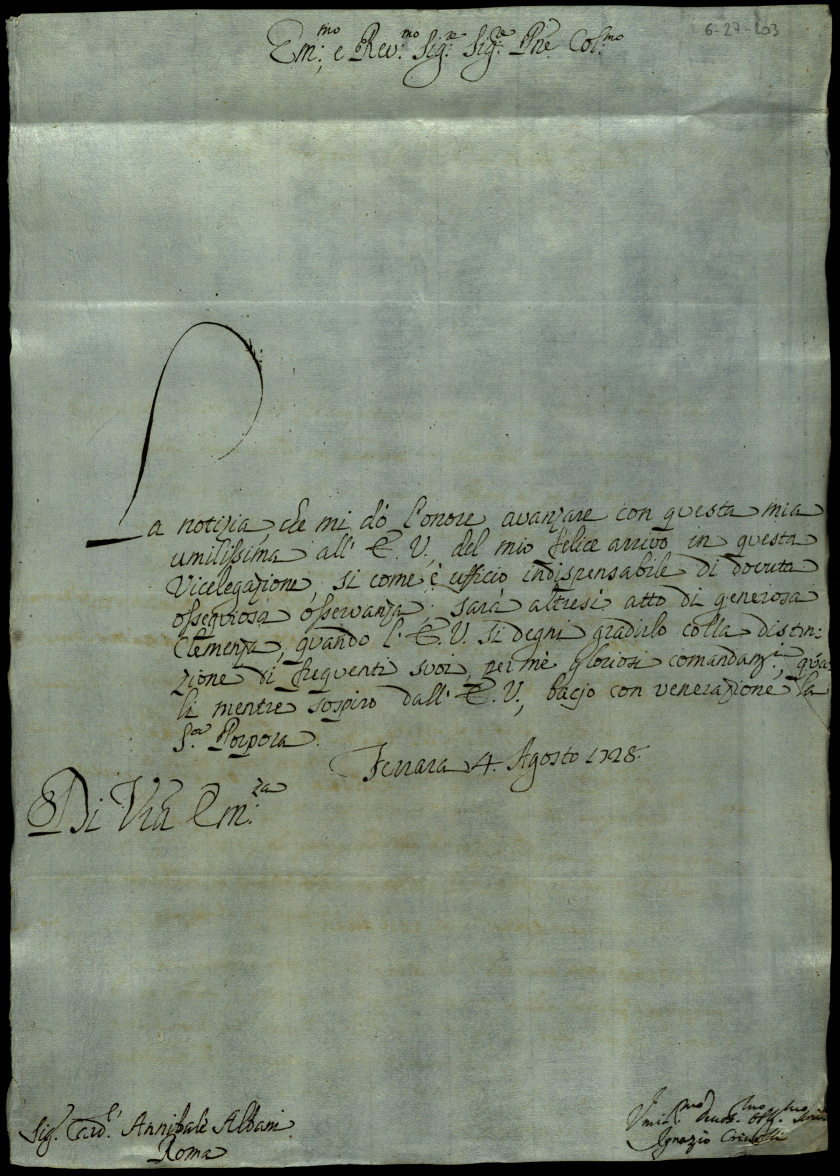 6-27-203
Em.mo, e Rev.mo Sig.re Sig.re Pne Col.mo
La notizia, che mi dò l'onore avanzare con questa mia
umilissima all' E. V. del mio felice arrivo in questa
Vicelegazione, si come è ufficio indispensabile di dovuta
ossequiosa osservanza, sarà altresì atto di generosa
Clemenza, quando l' E. V. si degni gradirlo colla distin:
zione di frequenti suoi, per mè gloriosi comandam.ti, qua:
li mentre sospiro dall' E. V., bacio con venerazione la
S.ra Porpora.
Ferrara 4. Agosto 1728.
Di Vra Em.za
Sig.r Card.l Annibale Albani
Roma
Umil.mo
Ignazio